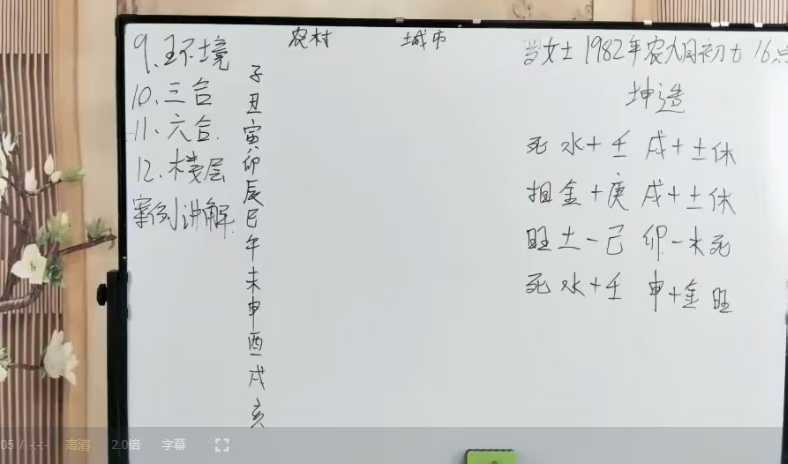 9、环境
10、三合
11、六合
12、楼层
案例讲解
农村 城市
子
丑
寅
卯
辰
巳
午
未
申
酉
戌
亥
女士 1982年农九月初七 16点
坤造
死 水+壬 戌+土休
相金+庚 戌+土休
旺土-己 卯-木死
死水+壬 申+金旺
05 / --:-- 高清 2.0倍 字幕